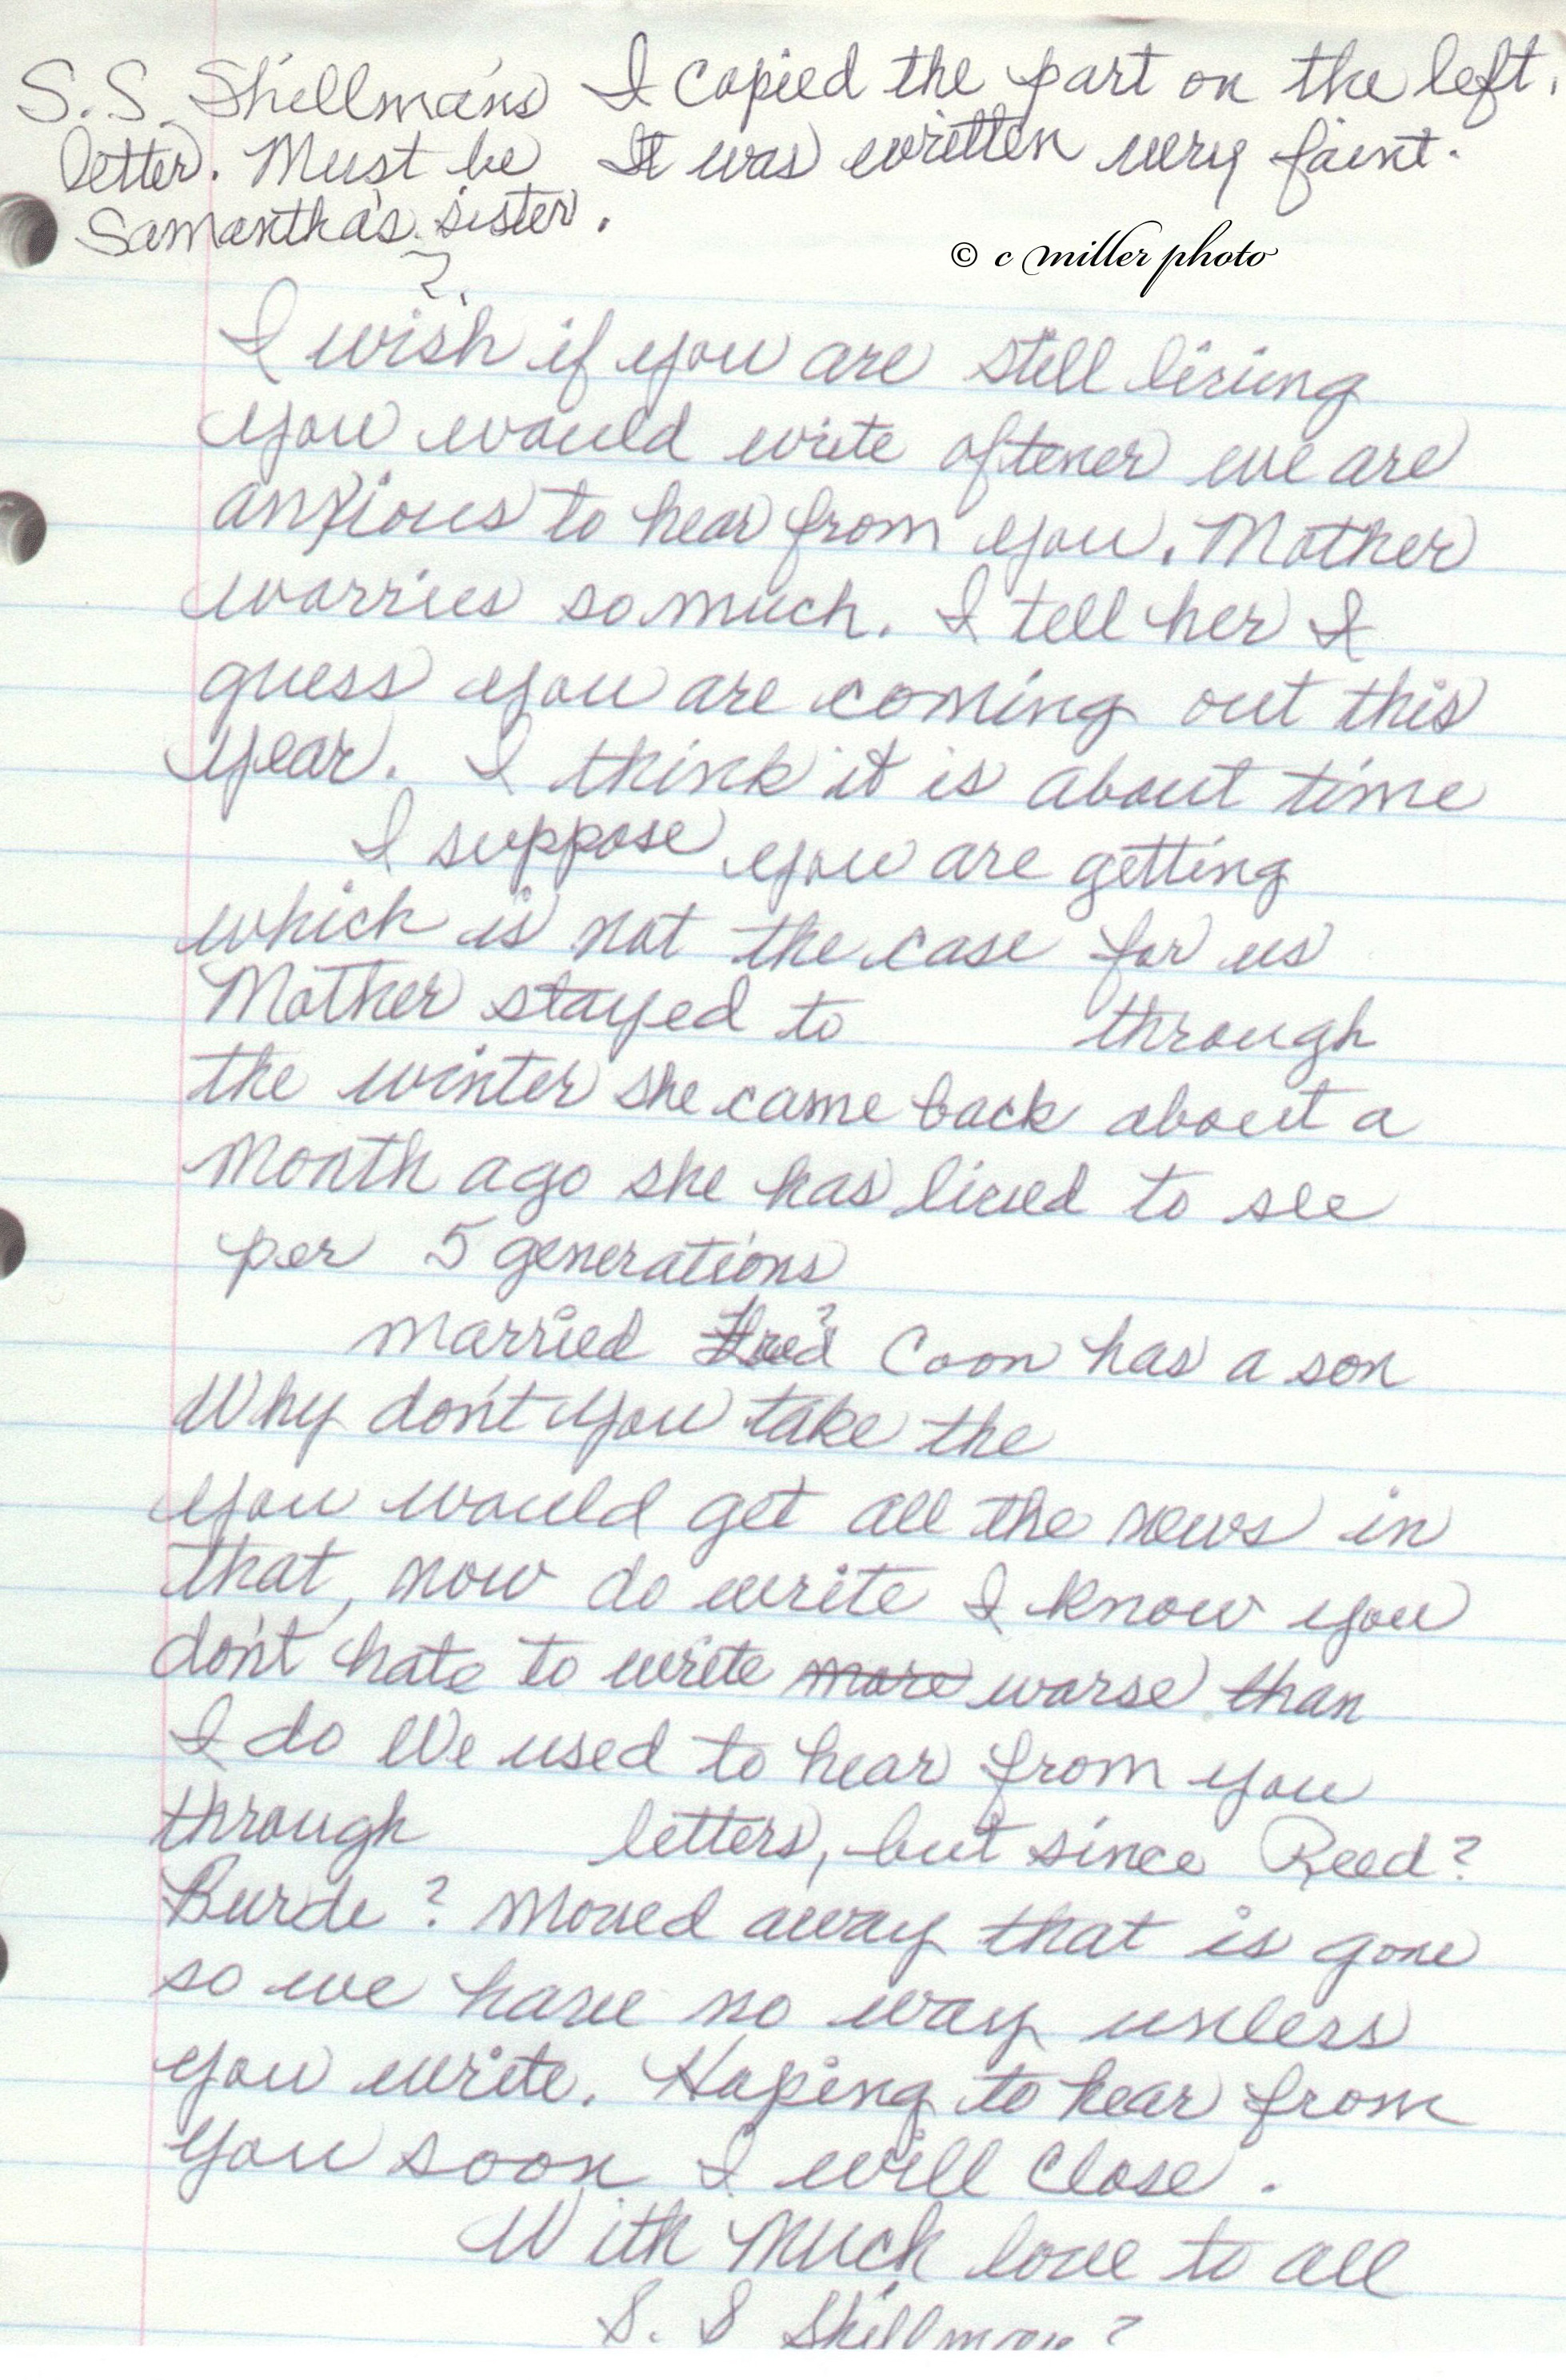 S.S. Shillman's I copied the part on the left.
letter. Must be It was written very faint.
Samantha's sister.
?
© c miller photo
I wish if you are still living
you would write oftener we are
anxious to hear from you. Mother
worries so much. I tell her I
guess you are coming out this
year. I think it is about time
I suppose you are getting
which is not the case for us
Mother stayed to through
the winter she came back about a
month ago she has lived to see
per 5 generations
married Fred? Coon has a son
Why don't you take the
you would get all the news in
that, now do write I know you
don't hate to write more worse than
I do We used to hear from you
through letters, but since Reed?
Burde? moved away that is gone
so we have no way unless
you write. Hoping to hear from
you soon I will close.
With much love to all
S. S Skillman?